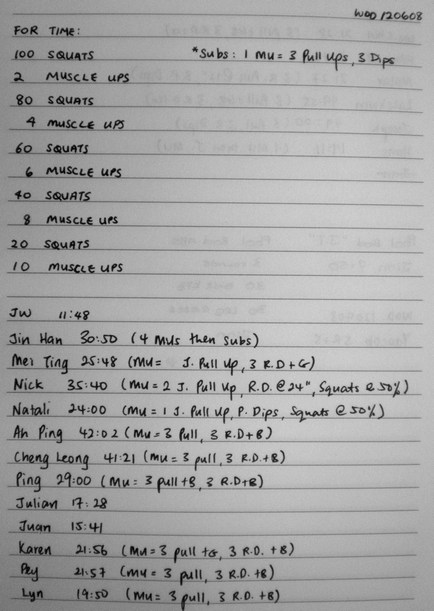 WOD 120608
FOR TIME:
100 SQUATS *Subs: 1 MU = 3 Pull Ups, 3 Dips
2 MUSCLE UPS
80 SQUATS
4 MUSCLE UPS
60 SQUATS
6 MUSCLE UPS
40 SQUATS
8 MUSCLE UPS
20 SQUATS
10 MUSCLE UPS
JW 11:48
Jin Han 30:50 (4 MUs then subs)
Mei Ting 25:48 (MU = J. Pull Up, 3 R.D + G)
Nick 35:40 (MU = 2 J. Pull Up, R.D. @ 24", Squats @ 50%)
Natali 24:00 (MU = 1 J. Pull Up, P. Dips, Squats @ 50%)
Ah Ping 42:02 (MU = 3 Pull, 3 R.D + B)
Cheng Leong 41:21 (MU = 3 pull, 3 R.D. + B)
Ping 29:00 (MU = 3 pull + B, 3 R.D + B)
Julian 17:28
Juan 15:41
Karen 21:56 (MU = 3 pull + G, 3 R.D. + B)
Pey 21:57 (MU = 3 pull, 3 R.D. + B)
Lyn 19:50 (MU = 3 pull, 3 R.D. + B)